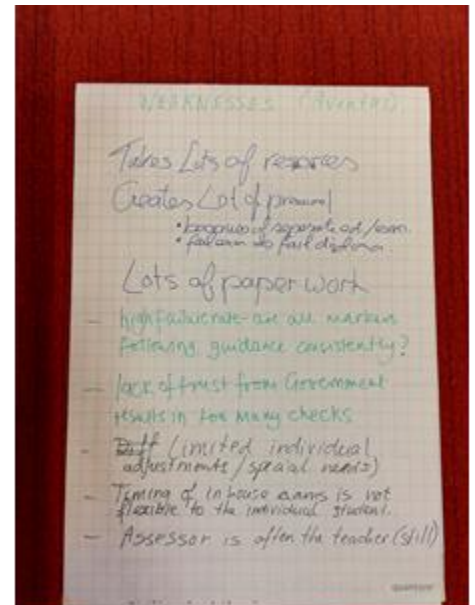 WEAKNESSES
Takes Lots of resources
Creates Lot of
of separate
fail exam fail diploma.
Lots of paper work
- high failure rate - are all markers
following guidance consistently?
- lack of trust from Government
results in too many checks
- Diff Limited individual
adjustments / special needs)
- Timing of inhouse exams is not
flexible to the individual student.
- Assessor is often the teacher (still)